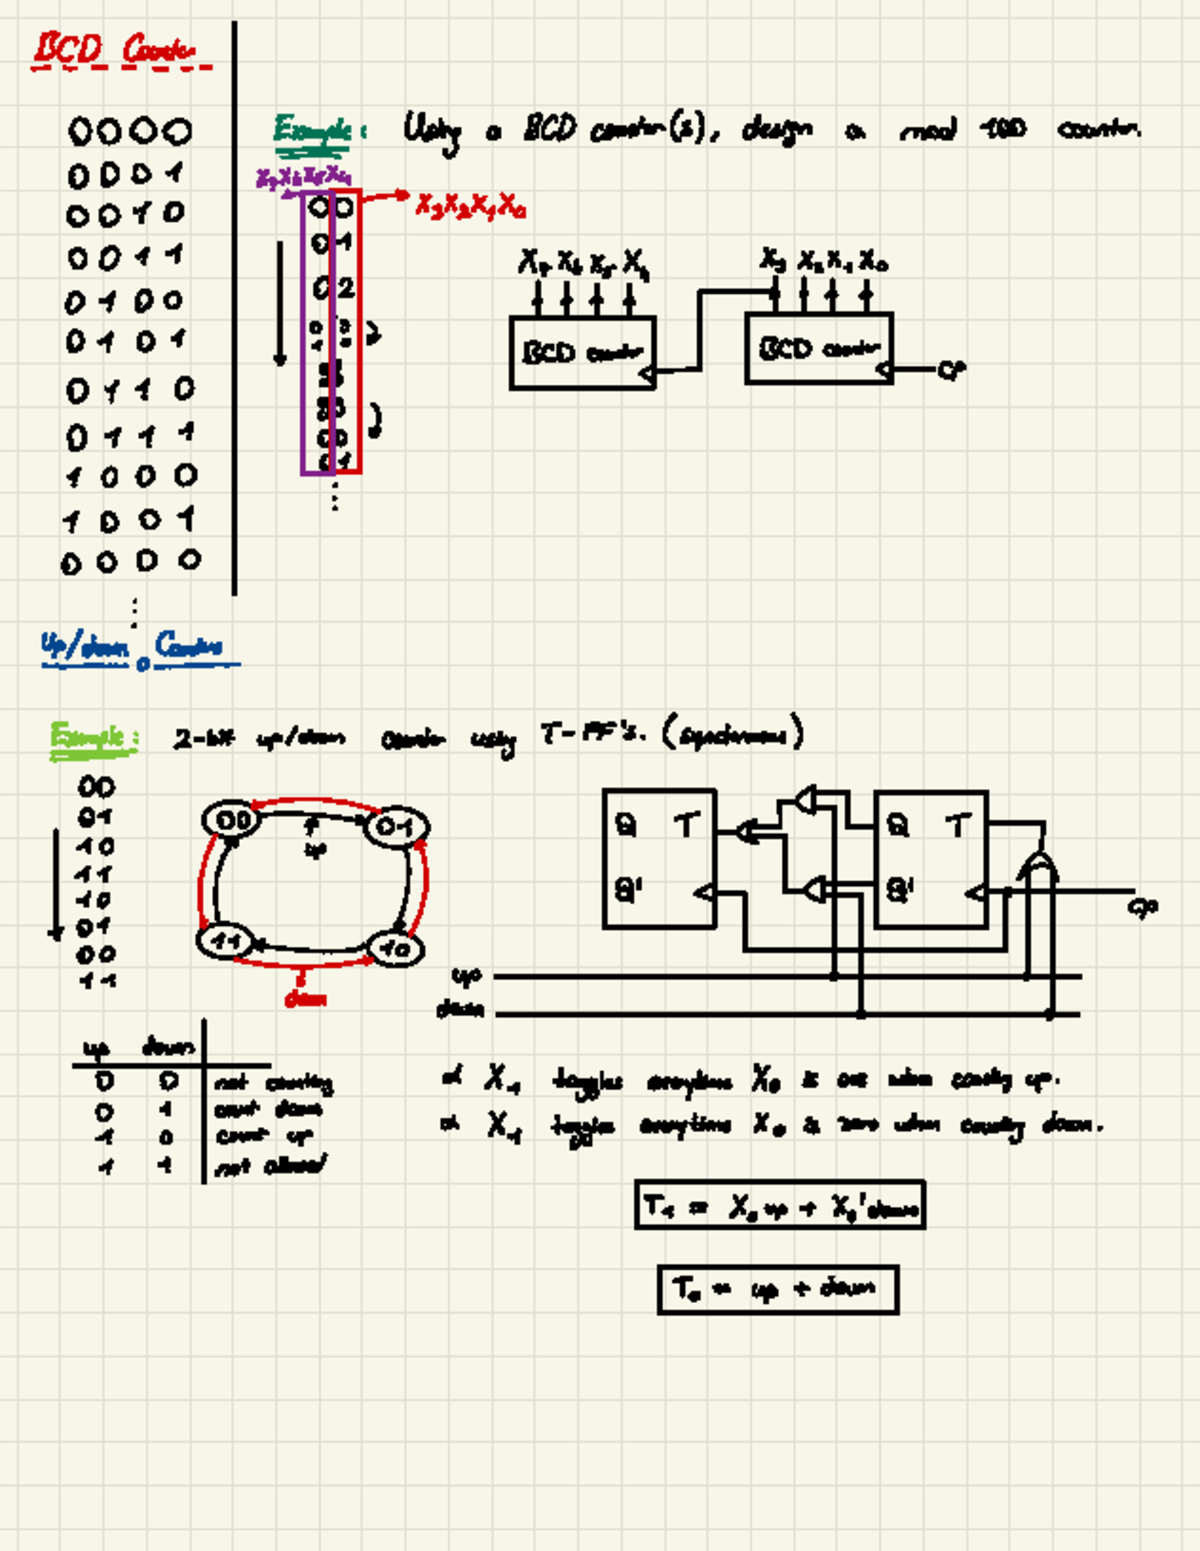 BCD Counter
0000
0001
0010
0011
0100
0101
0110
0111
1000
1001
0000
⋮
Example: Using a BCD counter(s), design a mod 100 counter.
X7X6X5X4
X3X2X1X0
00
01
02
00
01
⋮
X7 X6 X5 X4
X3 X2 X1 X0
BCD counter
BCD counter
CP
Up/down Counters
Example: 2-bit up/down counter using T-FF's. (synchronous)
00
01
10
11
10
01
00
11
00
01
up
11
10
down
Q T
Q'
Q T
Q'
CP
up
down
up down
0 0 not counting
0 1 count down
1 0 count up
1 1 not allowed
X1 toggles everytime X0 is one when counting up.
X1 toggles everytime X0 is zero when counting down.
T1 = X0 up + X0' down
T0 = up + down